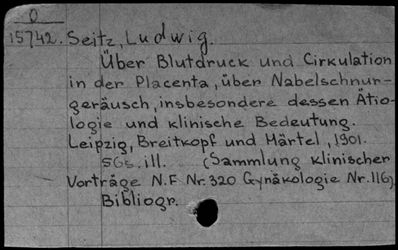 O
15742. Seitz, Ludwig.
Über Blutdruck und Cirkulation
in der Placenta, über Nabelschnur-
geräusch, insbesondere dessen Ätio-
logie und klinische Bedeutung.
Leipzig, Breitkopf und Härtel, 1901.
56s. ill. (Sammlung klinischer
Vorträge N.F Nr. 320 Gynäkologie Nr. 116).
Bibliogr.